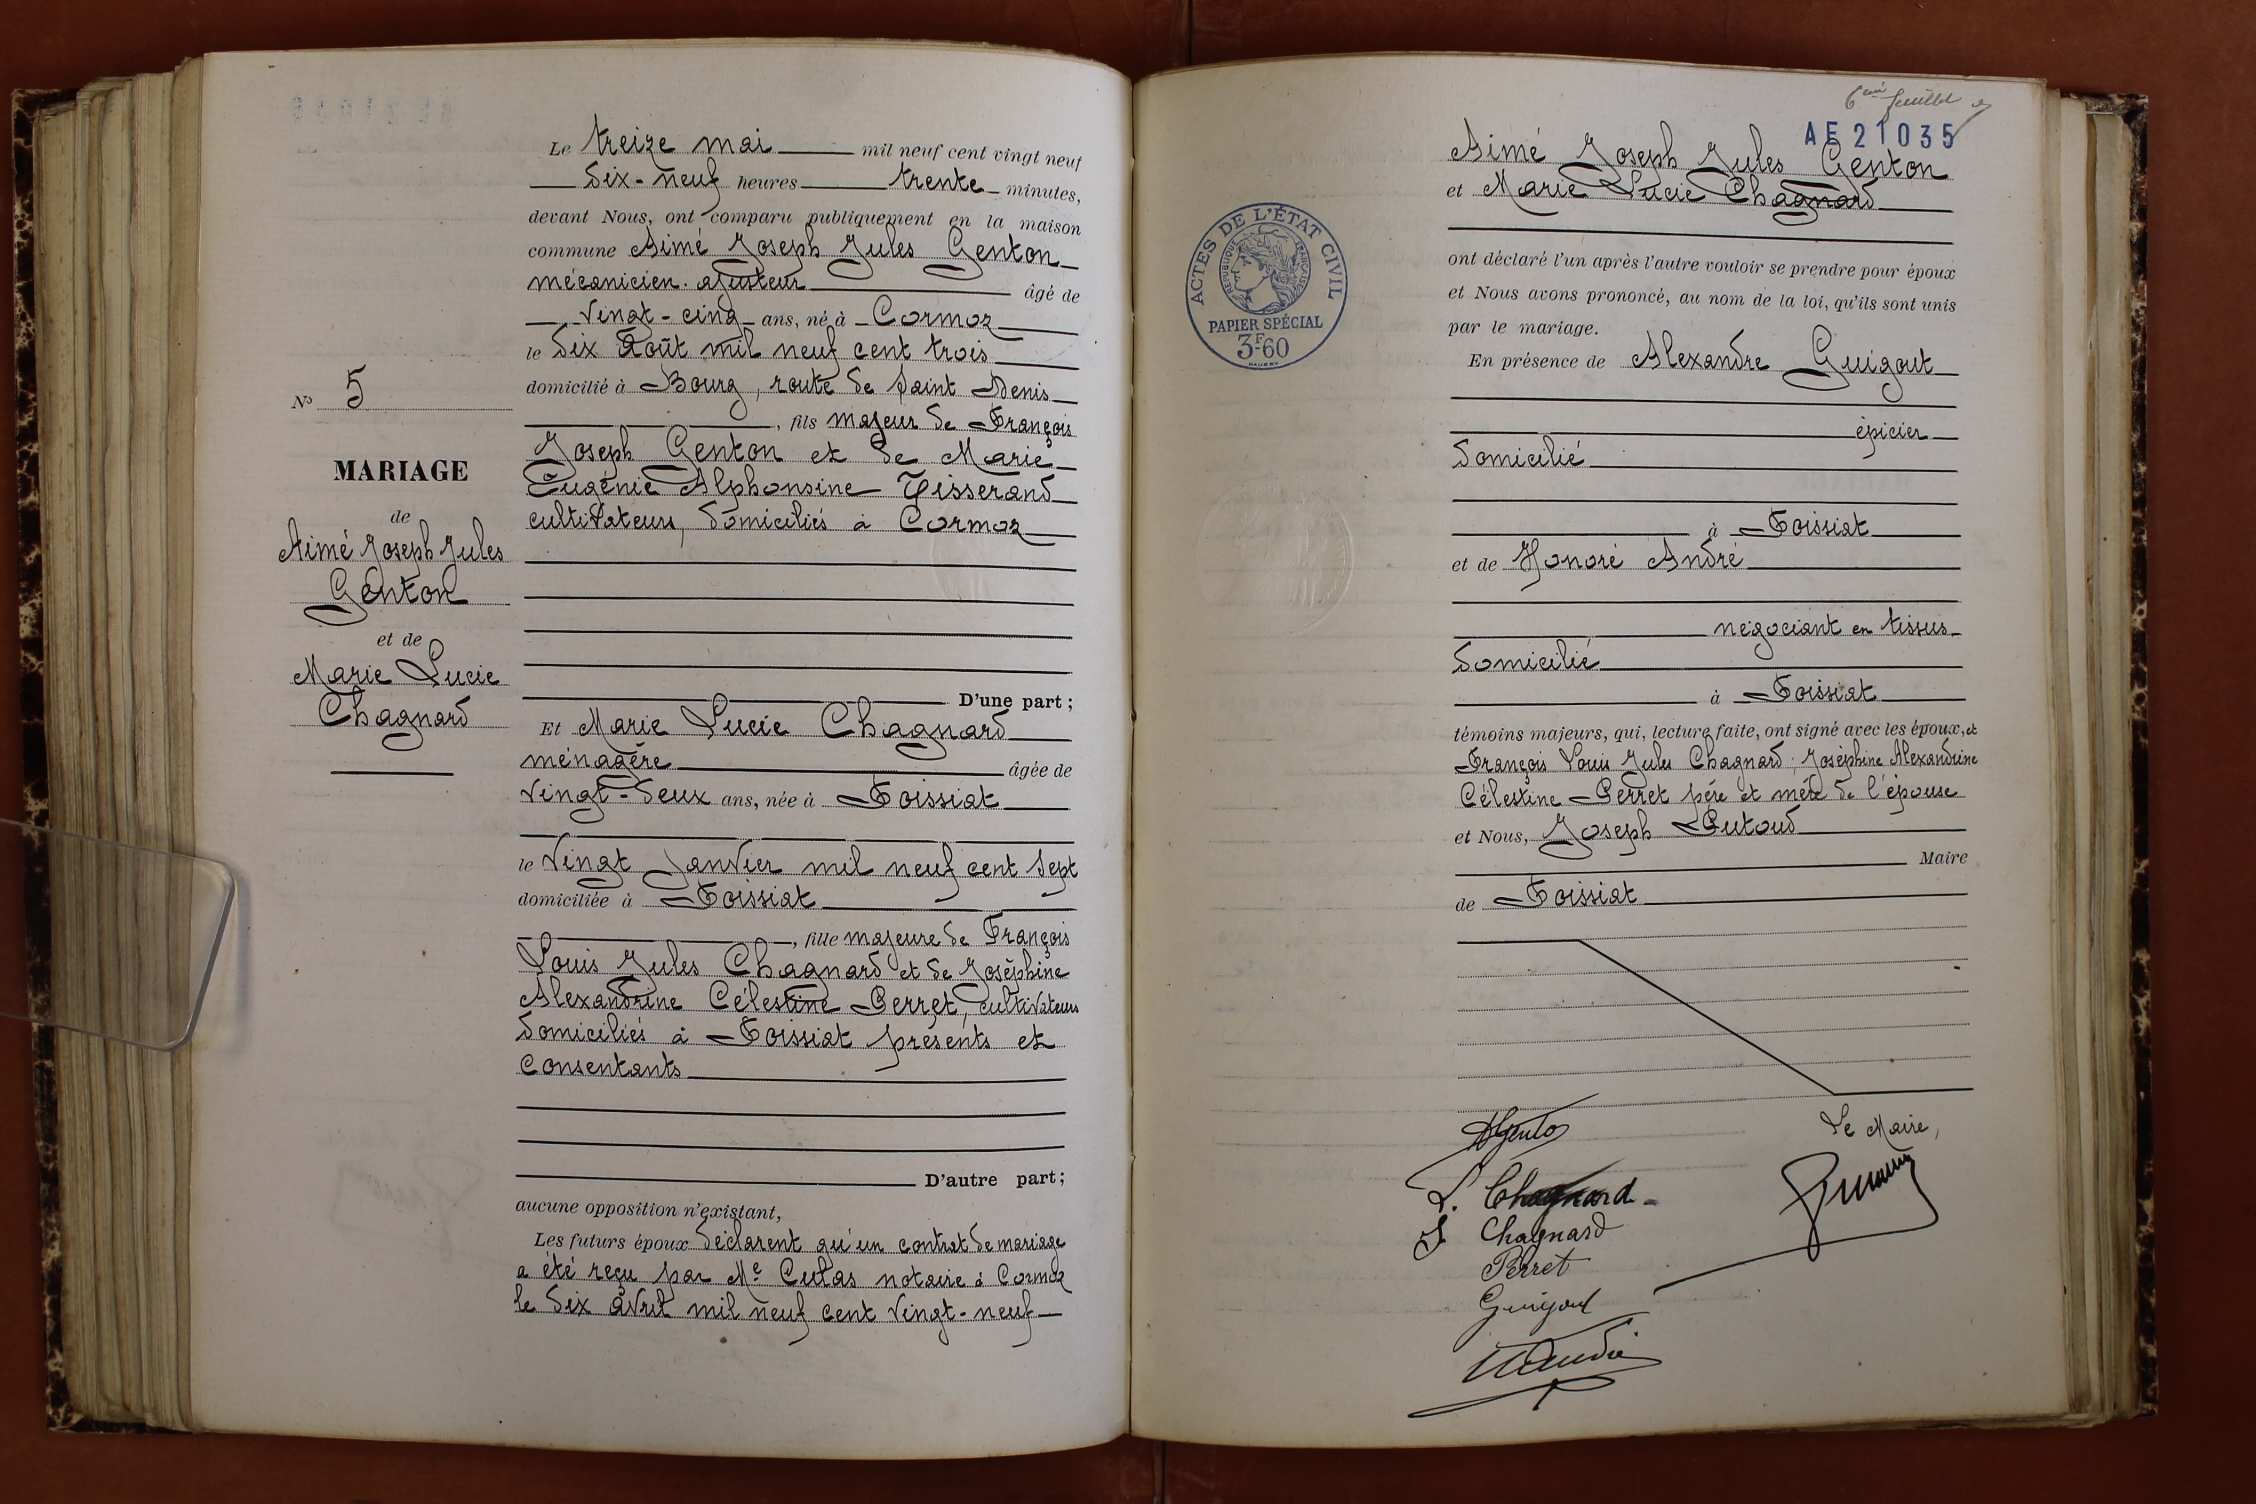 Le treize mai mil neuf cent vingt neuf
dix-neuf heures trente minutes,
devant Nous, ont comparu publiquement en la maison
commune Aimé Joseph Jules Genton
mécanicien-ajusteur âgé de
vingt-cinq ans, né à Cormoz
le dix Août mil neuf cent trois
domicilié à Bourg, route de Saint Denis
, fils majeur de François
Joseph Genton et de Marie
Eugénie Alphonsine Tisserand
cultivateurs, domiciliés à Cormoz
D'une part ;
Et Marie Lucie Chagnard
ménagère âgée de
vingt-deux ans, née à Foissiat
le vingt janvier mil neuf cent sept
domiciliée à Foissiat
, fille majeure de François
Louis Jules Chagnard et de Joséphine
Alexandrine Célestine Perret, cultivateurs
domiciliés à Foissiat présents et
consentants
D'autre part ;
aucune opposition n'existant,
Les futurs époux déclarent qu'un contrat de mariage
a été reçu par Me Culas notaire à Cormoz
le dix avril mil neuf cent vingt-neuf
No 5
MARIAGE
de
Aimé Joseph Jules
Genton
et de
Marie Lucie
Chagnard
6eme feuillet
AE 21035
Aimé Joseph Jules Genton
et Marie Lucie Chagnard
ont déclaré l'un après l'autre vouloir se prendre pour époux
et Nous avons prononcé, au nom de la loi, qu'ils sont unis
par le mariage.
En présence de Alexandre Guigout
épicier
domicilié
à Foissiat
et de Honoré André
négociant en tissus
domicilié
à Foissiat
témoins majeurs, qui, lecture faite, ont signé avec les époux, et
François Louis Jules Chagnard, Joséphine Alexandrine
Célestine Perret père et mère de l'épouse
et Nous, Joseph Putoud
Maire
de Foissiat
ACTES DE L'ÉTAT CIVIL
RÉPUBLIQUE FRANÇAISE
PAPIER SPÉCIAL
3F60
Le Maire,
L. Chagnard
J Chagnard
Perret
Guigout